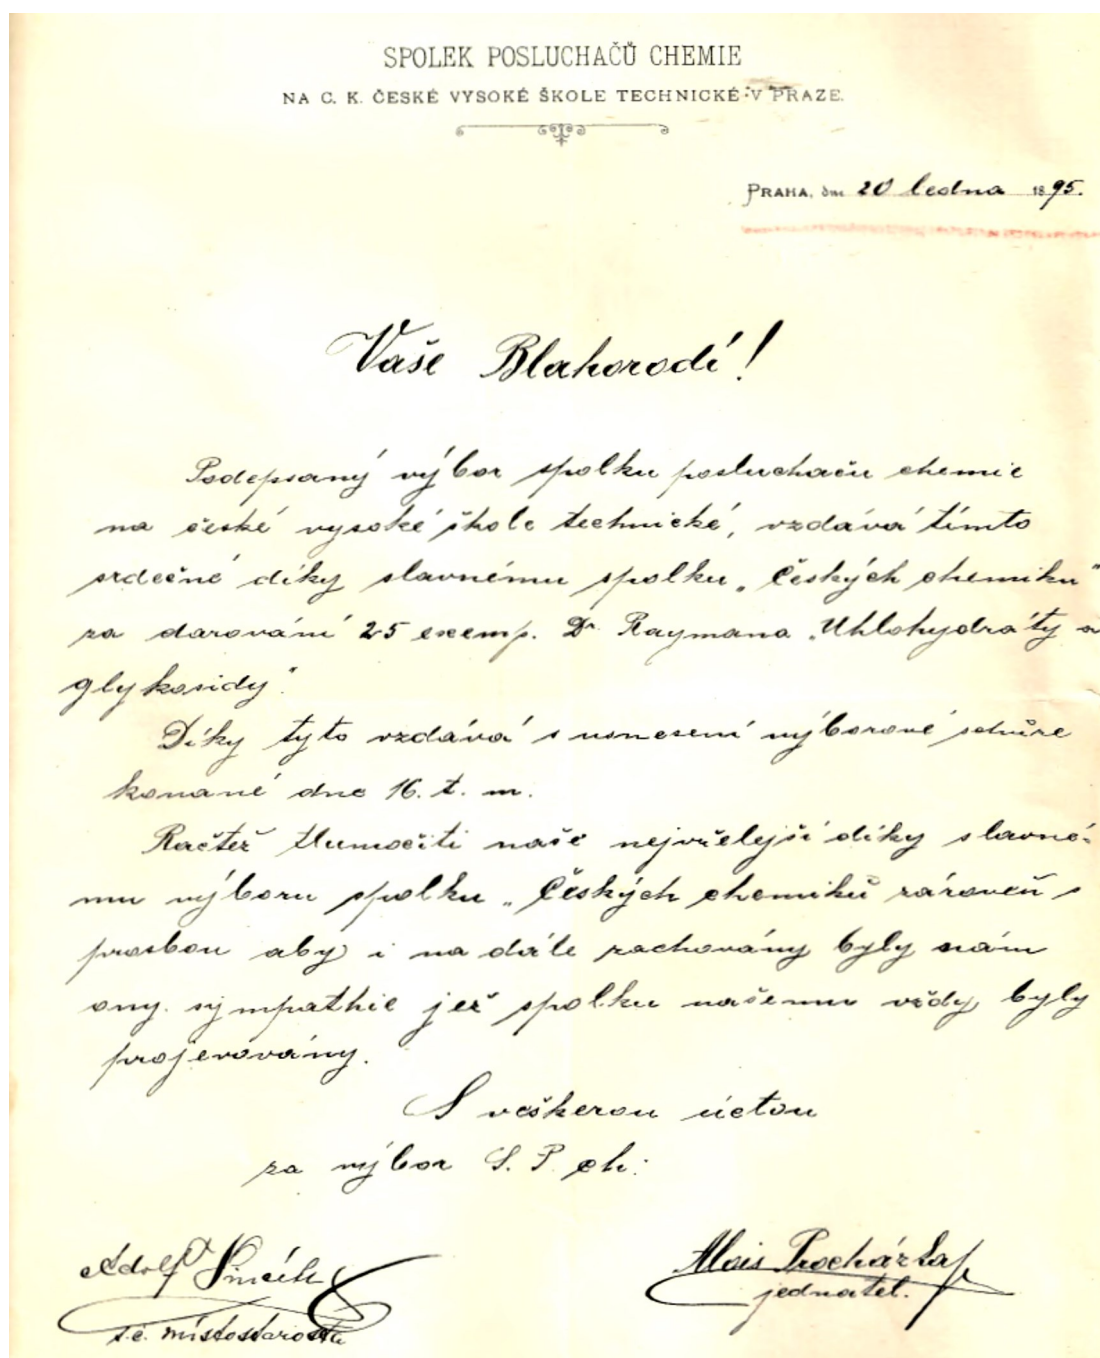 SPOLEK POSLUCHAČŮ CHEMIE
NA C. K. ČESKÉ VYSOKÉ ŠKOLE TECHNICKÉ V PRAZE.
PRAHA, dne 20 ledna 1895.
Vaše Blahorodí!
Podepsaný výbor spolku posluchačů chemie
na české vysoké škole technické, vzdává tímto
srdečné díky slavnému spolku „Českých chemiku"
za darování 25 exemp. Dr Raymana „Uhlohydráty a
glykosidy".
Díky tyto vzdává s usnesení výborové schůze
konané dne 16. t. m.
Račtež tlumočiti naše nejvřelejší díky slavné-
mu výboru spolku „Českých chemiků zároveň s
prosbou aby i na dále zachovány byly nám
ony sympathie jež spolku našemu vždy byly
projevovány.
S veškerou úctou
za výbor S. P. ch:
Adolf
Alois Procházka
jednatel.
t.č. místostarosta